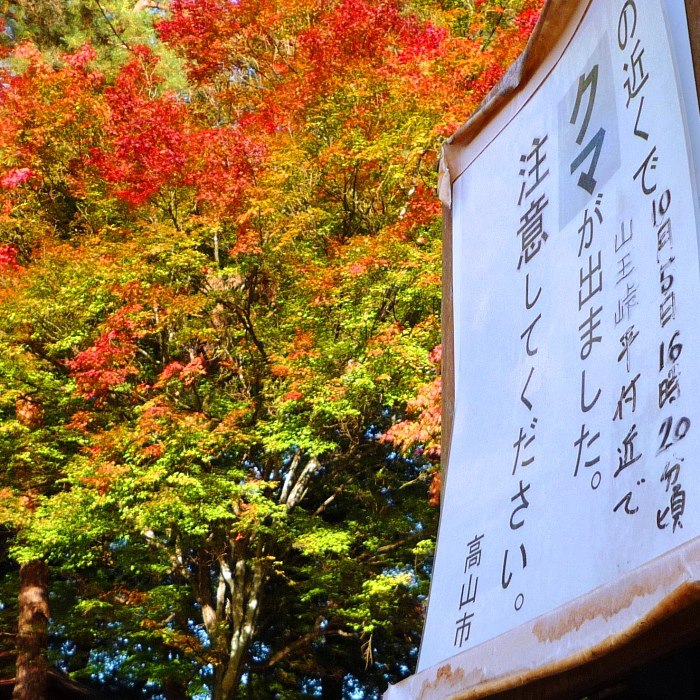 の近くで
10月15日16時20分頃
山王峠平付近で
クマが出ました。
注意してください。
高山市